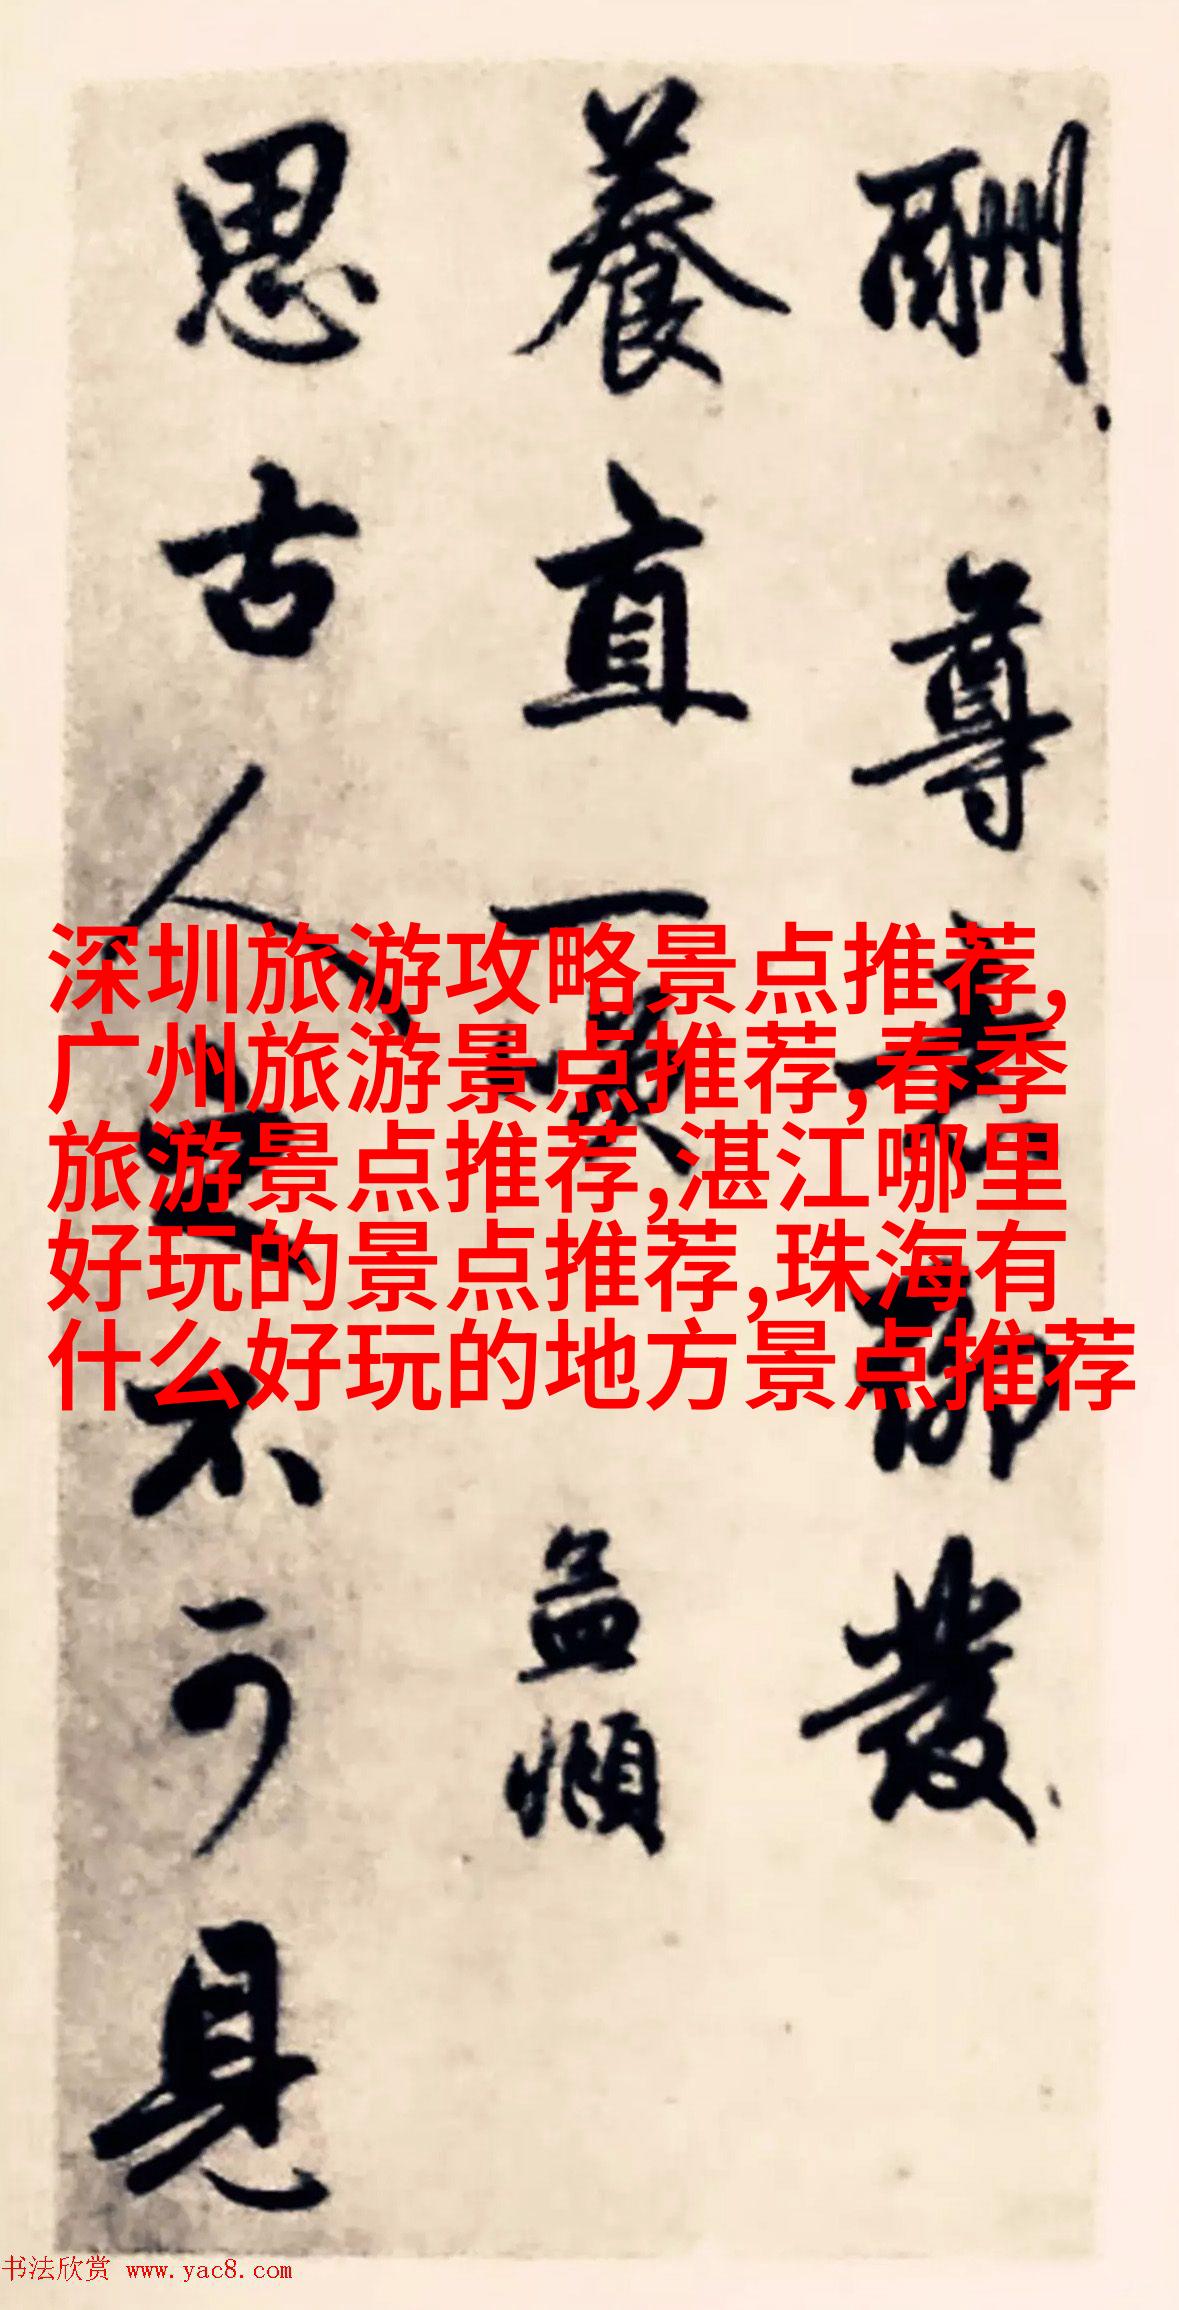 酬尊

養直
孟頫
思古人
不可見
深圳旅游攻略景点推荐,
广州旅游景点推荐,春季
旅游景点推荐,湛江哪里
好玩的景点推荐,珠海有
什么好玩的地方景点推荐
书法欣赏 www.yac8.com